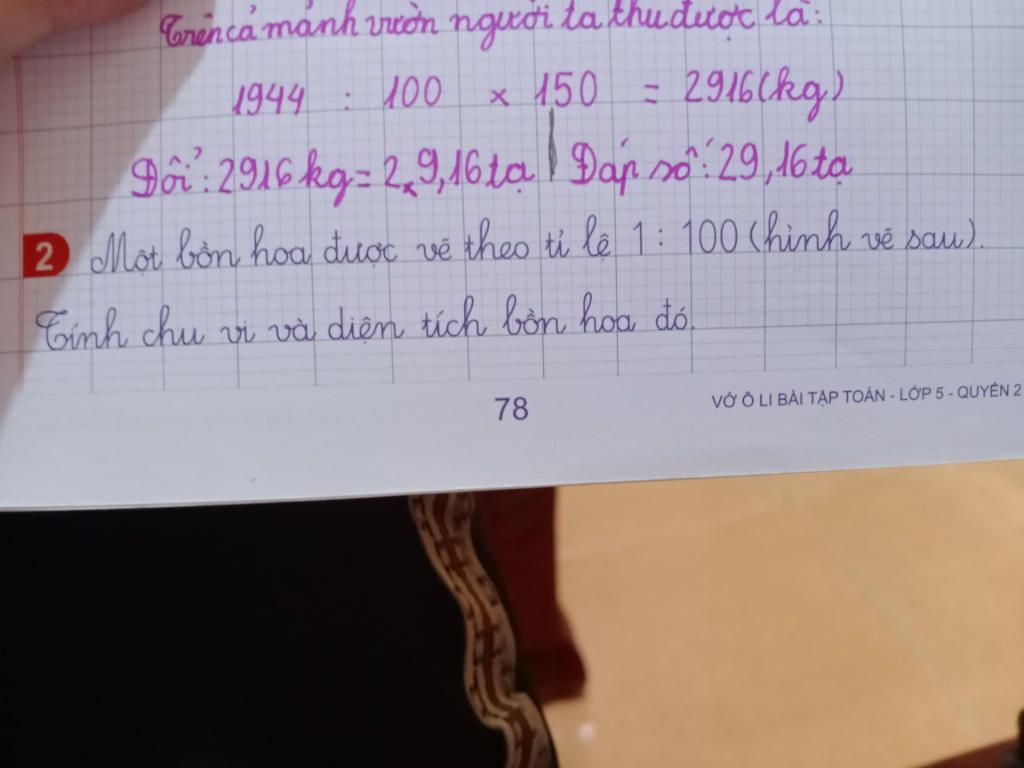 Trên cả mảnh vườn người ta thu được là:
1944 : 100 × 150 = 2916(kg)
Đổi: 2916kg = 2,9,16tạ | Đáp số: 29,16tạ
2 Một bồn hoa được vẽ theo tỉ lệ 1 : 100 (hình vẽ sau).
Tính chu vi và diện tích bồn hoa đó.
78
VỞ Ô LI BÀI TẬP TOÁN - LỚP 5 - QUYỂN 2